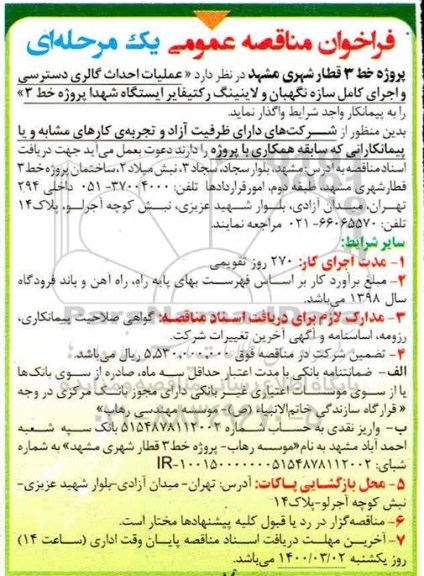 فراخوان مناقصه عمومی یک مرحله‌ای
پروژه خط ۳ قطار شهری مشهد در نظر دارد «عملیات احداث گالری دسترسی
و اجرای کامل سازه نگهبان و لاینینگ رکتیفایر ایستگاه شهدا پروژه خط ۳»
را به پیمانکار واجد شرایط واگذار نماید.
بدین منظور از شرکت‌های دارای ظرفیت آزاد و تجربه‌ی کارهای مشابه و یا
پیمانکارانی که سابقه همکاری با پروژه را دارند دعوت بعمل می‌آید جهت دریافت
اسناد مناقصه به آدرس: مشهد، بلوار سجاد، سجاد ۳، نبش میلاد ۲، ساختمان پروژه خط ۳
قطار شهری مشهد، طبقه دوم، امور قراردادها تلفن: ۳۷۰۰۴۰۰۰-۰۵۱ داخلی ۲۹۴
تهران، میدان آزادی، بلوار شهید عزیزی، نبش کوچه آجرلو، پلاک ۱۴
تلفن: ۶۶۰۶۵۵۷۰-۰۲۱ مراجعه نمایند.
سایر شرایط:
۱- مدت اجرای کار: ۲۷۰ روز تقویمی
۲- مبلغ برآورد کار بر اساس فهرست بهای پایه راه، راه آهن و باند فرودگاه
سال ۱۳۹۸ می‌باشد.
۳- مدارک لازم برای دریافت اسناد مناقصه: گواهی صلاحیت پیمانکاری،
رزومه، اساسنامه و آگهی آخرین تغییرات شرکت.
۴- تضمین شرکت در مناقصه فوق ۵،۵۳۰،۰۰۰،۰۰۰ ریال می‌باشد.
الف- ضمانتنامه بانکی با مدت اعتبار حداقل سه ماه، صادره از سوی بانک‌ها
یا از سوی موسسات اعتباری غیر بانکی دارای مجوز بانک مرکزی در وجه
«قرارگاه سازندگی خاتم‌الانبیاء (ص)- رهاب»
ب- واریز نقدی به حساب شماره ۵۱۵۴۸۷۸۱۱۲۰۰۲ بانک سپه شعبه
احمد آباد مشهد به نام «موسسه رهاب- پروژه خط ۳ قطار شهری مشهد» به شماره
شبای: IR-۱۰۰۱۵۰۰۰۰۰۰۵۱۵۴۸۷۸۱۱۲۰۰۲
۵- محل بازگشایی پاکات: آدرس: تهران- میدان آزادی-بلوار شهید عزیزی-
نبش کوچه آجرلو-پلاک ۱۴
۶- مناقصه‌گزار در رد یا قبول کلیه پیشنهادها مختار است.
۷- آخرین مهلت دریافت اسناد مناقصه پایان وقت اداری (ساعت ۱۴)
روز یکشنبه ۱۴۰۰/۰۳/۰۲ می‌باشد.